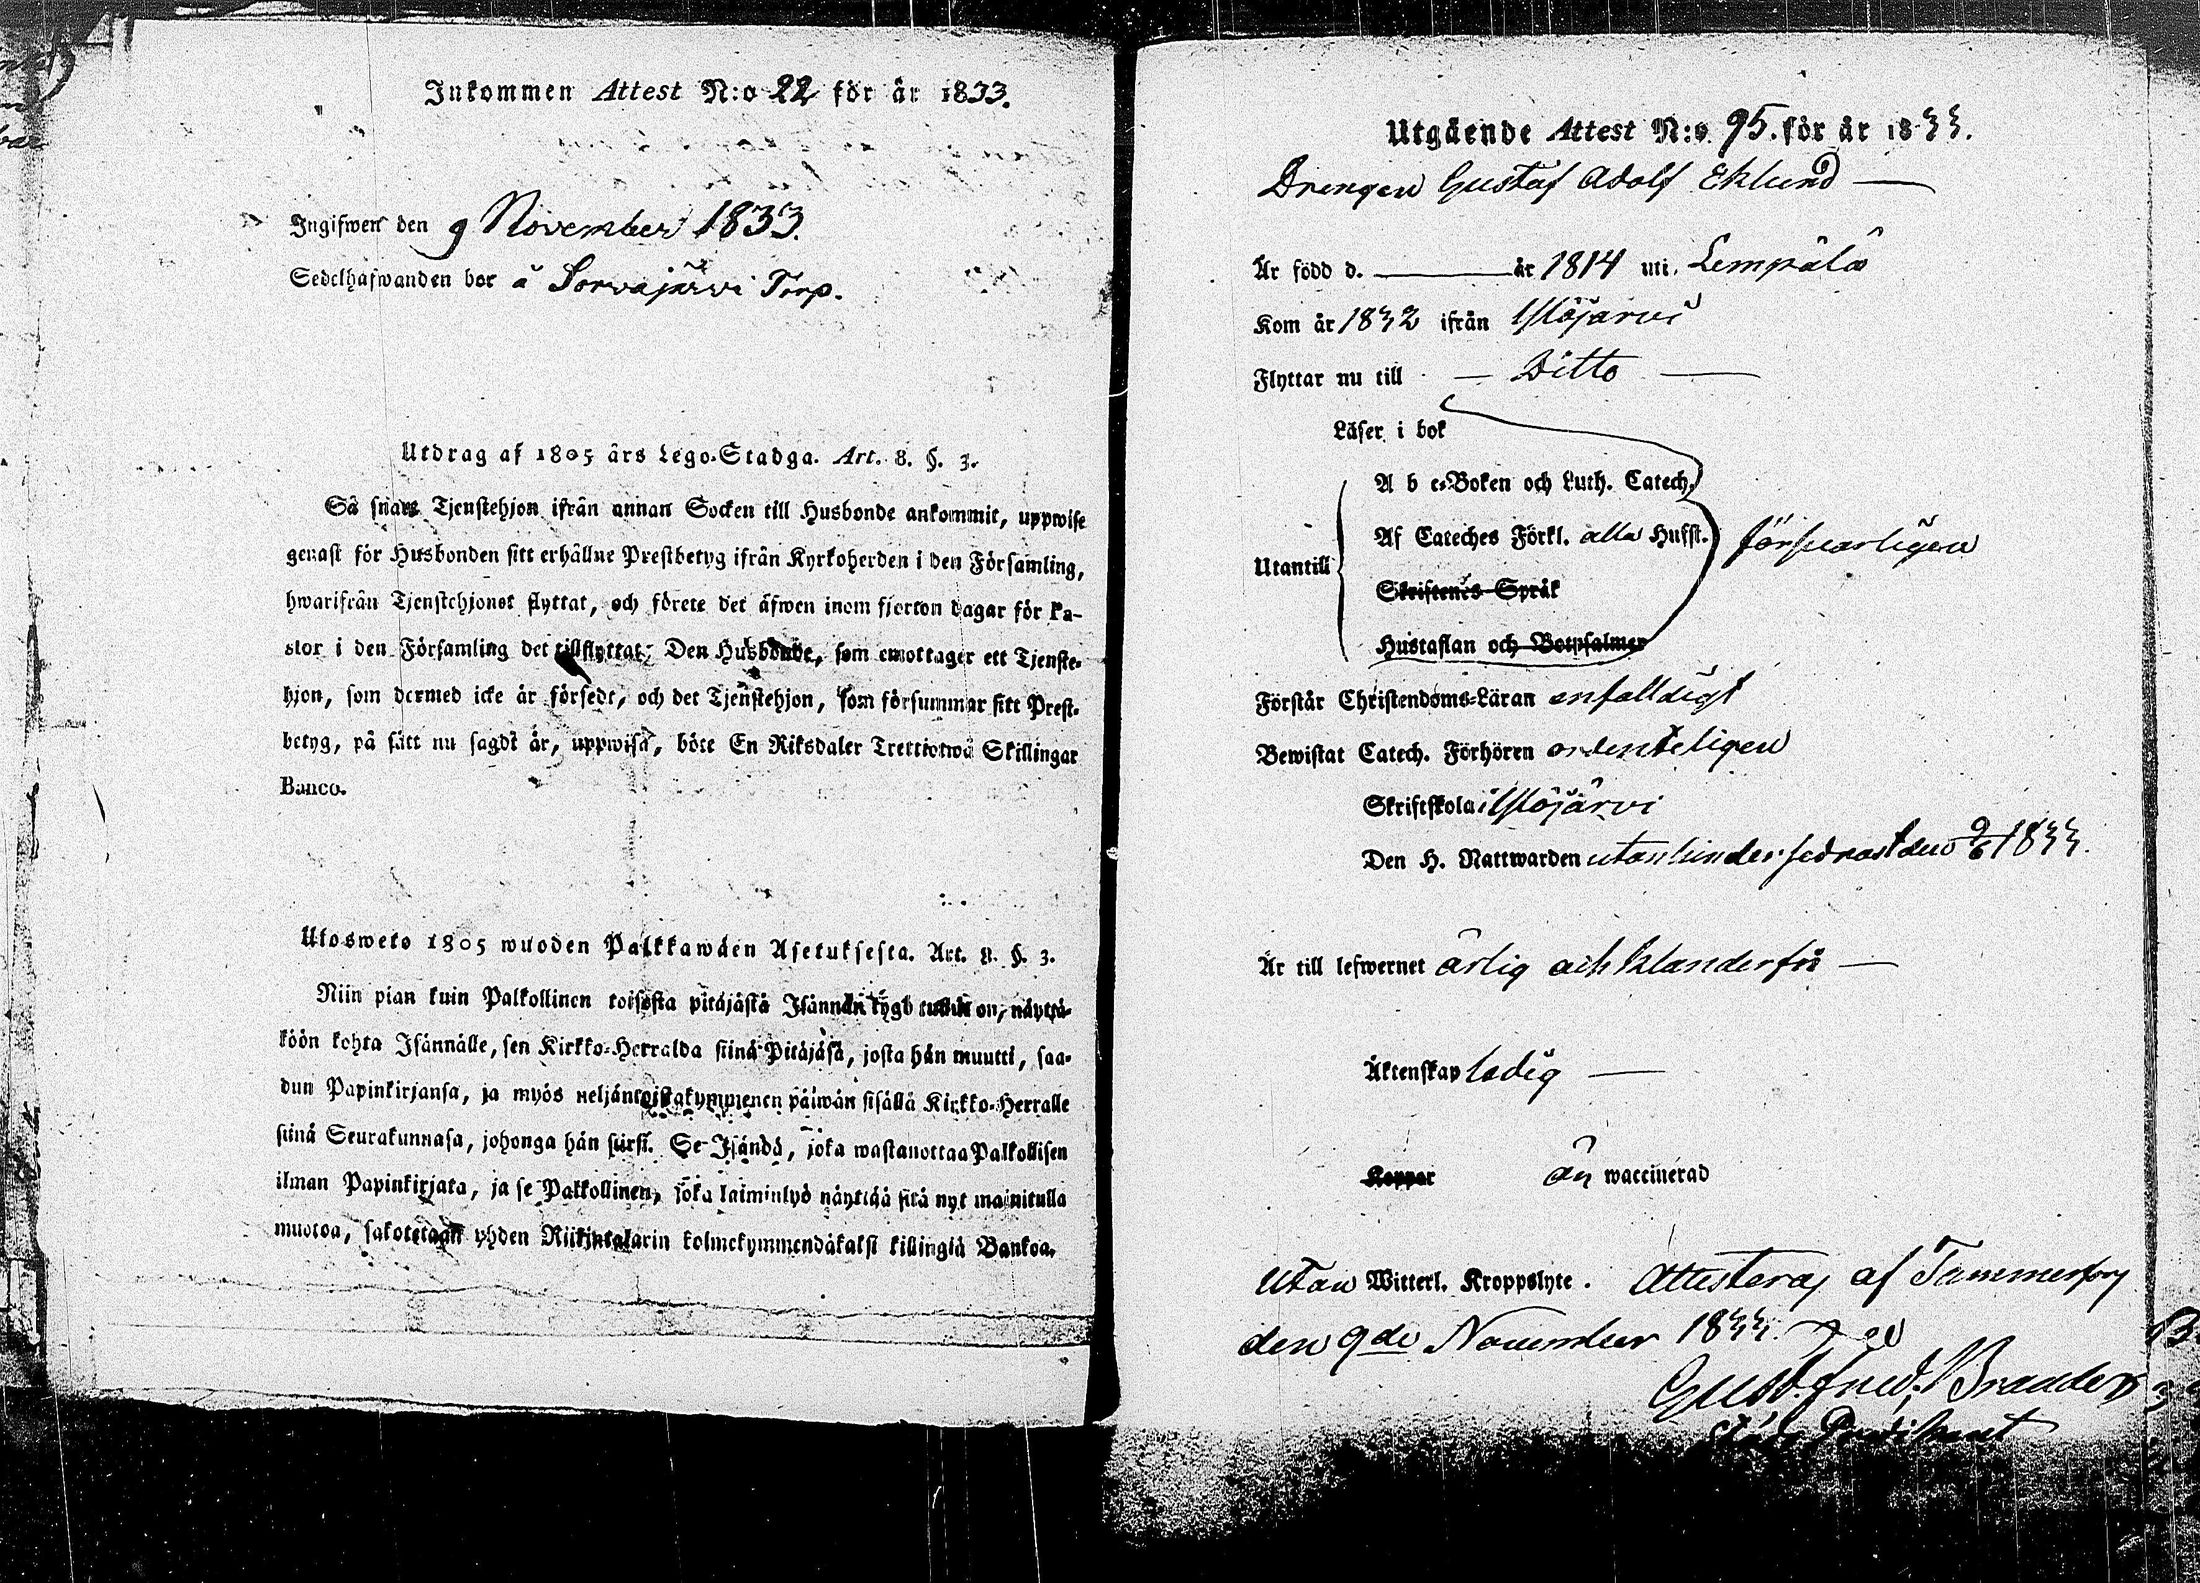 Inkommen Attest N:o 22 för år 1833.
Ingifwen den 9 November 1833.
Sedelhafwanden bor å Sorwajärwi Torp.
Utdrag af 1805 års Lego-Stadga. Art. 8. §. 3.
Så snart Tjenstehjon ifrån annan Socken till Husbonde ankommit, uppwise
genast för Husbonden sitt erhållne Prestbetyg ifrån Kyrkoherden i den Församling,
hwarifrån Tjenstehjonet flyttat, och förete det äfwen inom fjorton dagar för Pa-
stor i den Församling det tillflyttat; Den Husbonde, som emottager ett Tjenste-
hjon, som dermed icke är försedt, och det Tjenstehjon, som försummar sitt Prest-
betyg, på sätt nu sagdt är, uppwisa, böte En Riksdaler Trettiotwå Skillingar
Banco.
Ulosweto 1805 wuoden Palkkawäen Asetuksesta. Art. 8. §. 3.
Niin pian kuin Palkollinen toisesta pitäjästä Isännän tygö tullut on, näyttä-
köön kohta Isännälle, sen Kirkko-Herralda siinä Pitäjäsä, josta hän muutti, saa-
dun Papinkirjansa, ja myös neljäntoistakymmenen päiwän sisällä Kirkko-Herralle
siinä Seurakunnasa, johonga hän siirsi. Se Isändä, joka wastanottaa Palkollisen
ilman Papinkirjata, ja se Palkollinen, joka laiminlyö näyttää sitä nyt mainitulla
muotoa, sakotetaan yhden Riikintalarin kolmekymmendäkaksi killingiä Bankoa.
Utgående Attest N:o 95. för år 1833.
Drengen Gustaf Adolf Eklund
Är född d. år 1814 uti Lempälä
Kom år 1832 ifrån Ylöjärvi
Flyttar nu till Ditto
Läser i bok
A b c-Boken och Luth. Catech.
Af Cateches Förkl. alla Husst. försvarligen
Utantill
Skriftenes Språk
Hustaflan och Botpsalmer
Förstår Christendoms-Läran enfalldigt
Bewistat Catech. Förhören ordenteligen
Skriftskola i Ylöjärvi
Den H. Nattwarden utan hinder sednast den 9/6 1833.
Är till lefwernet ärlig och klanderfri
Äktenskap ledig
Koppor är waccinerad
Utan Witterl. Kroppslyte. Attesteras af Tammerfors
den 9de November 1833.
Gust. Fred. Brander
Predikant